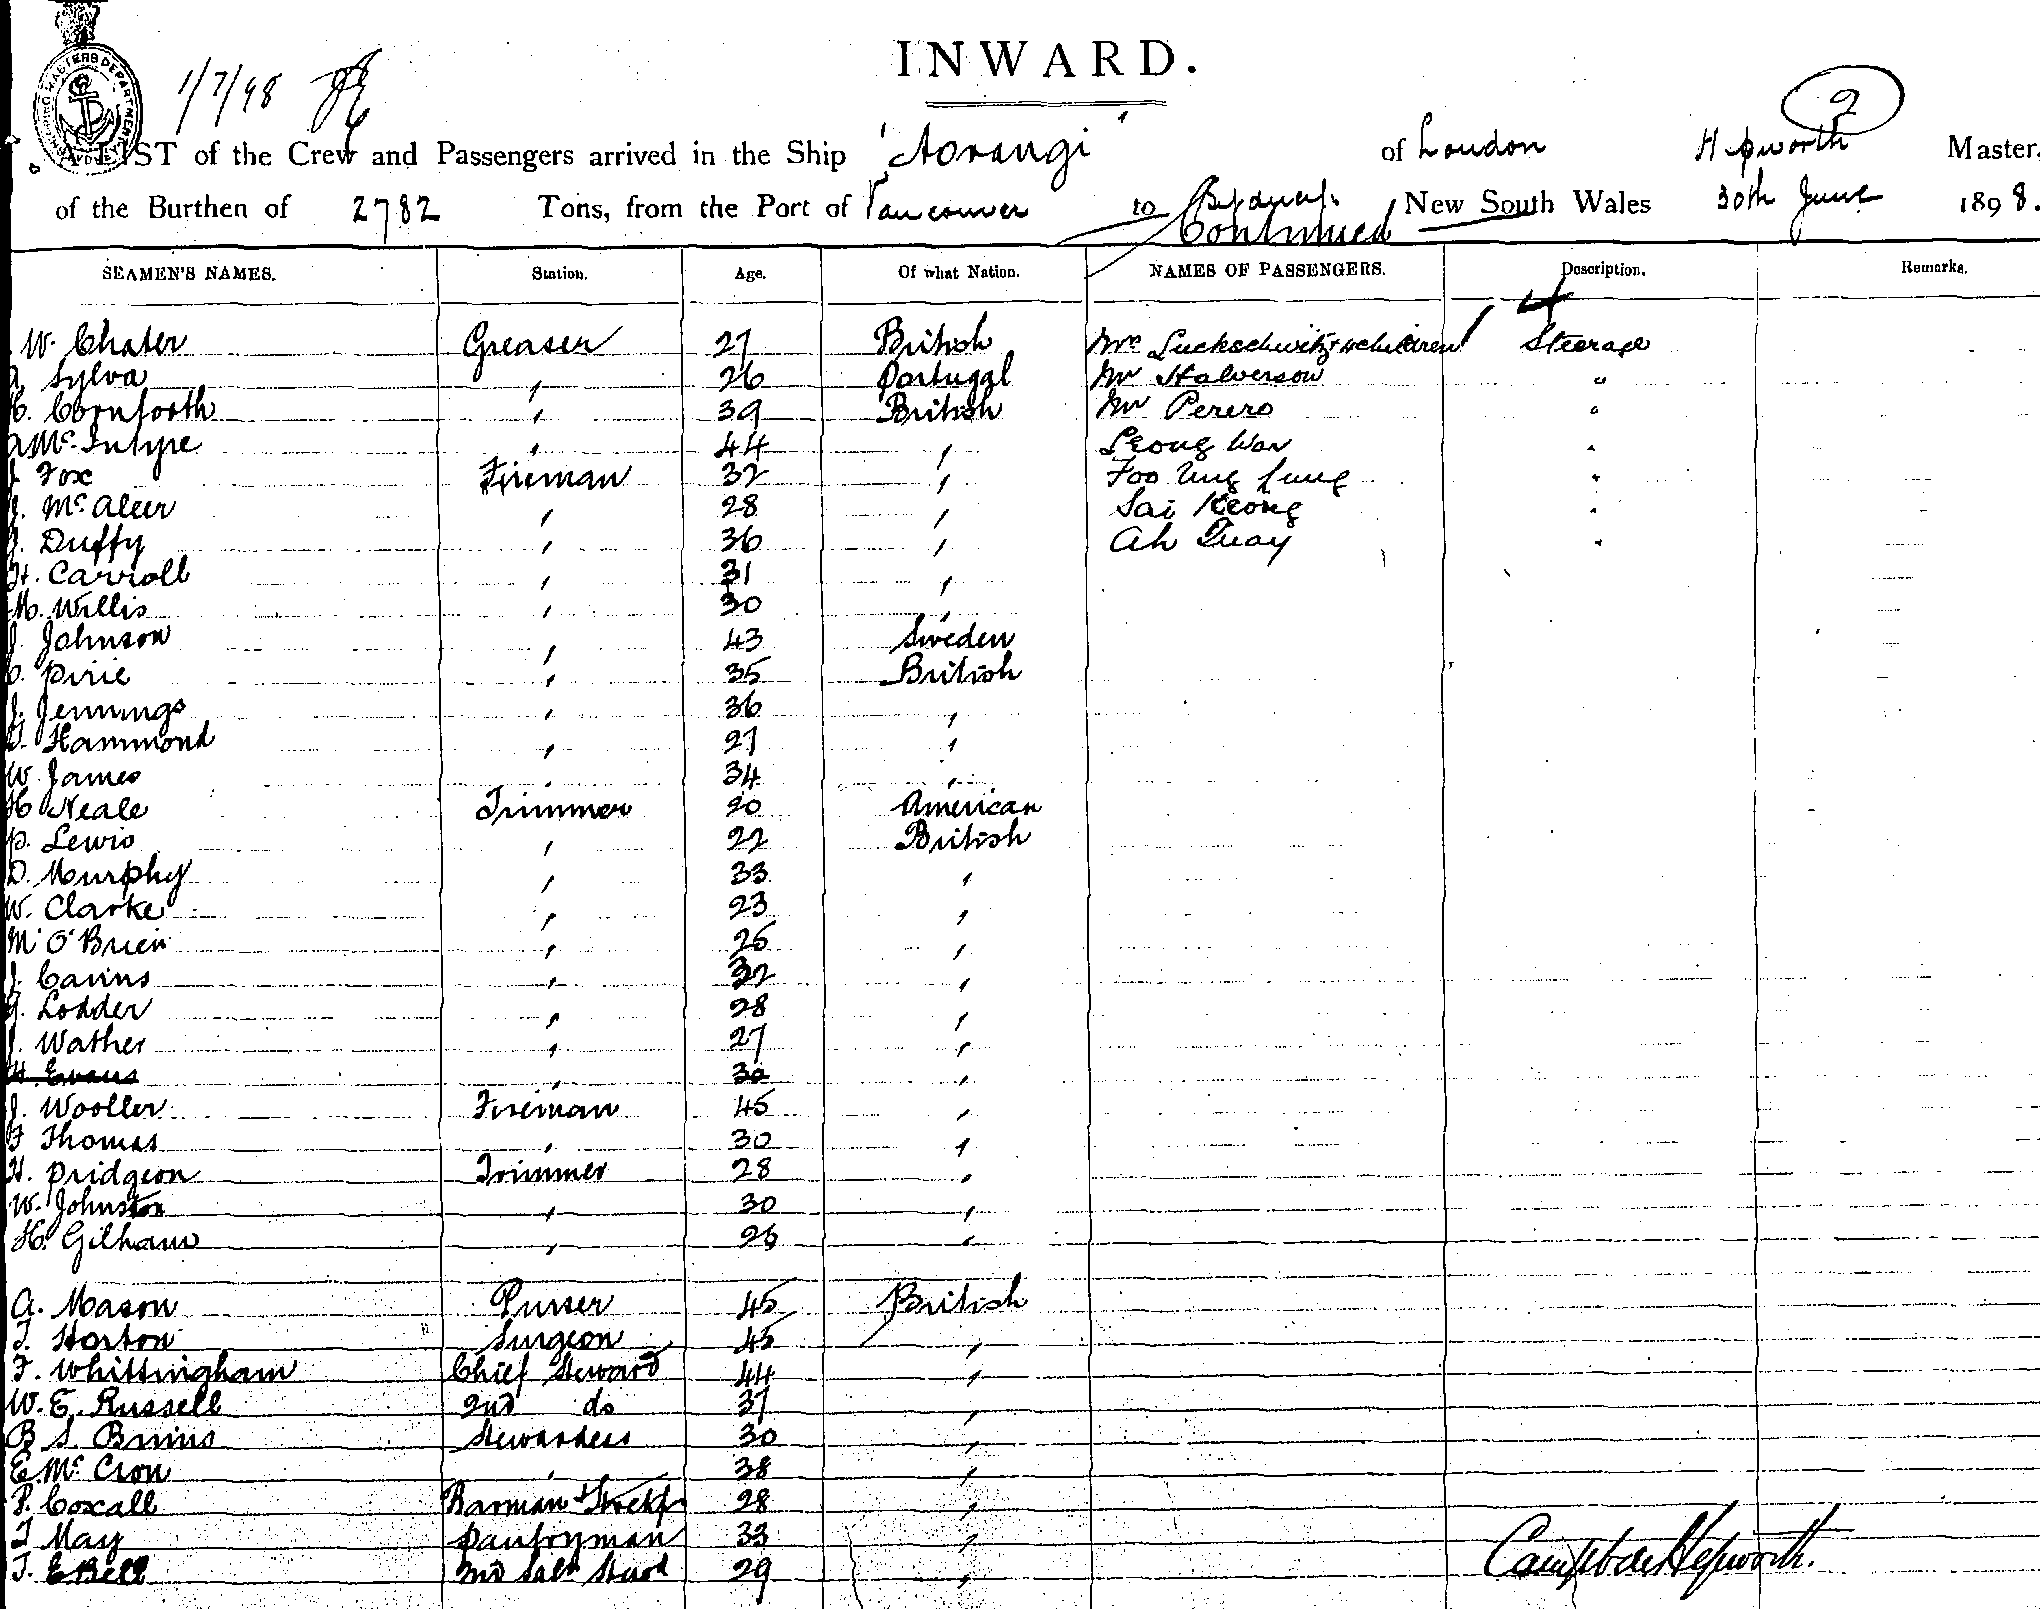 INWARD.
1/7/98
2
LIST of the Crew and Passengers arrived in the Ship "Aorangi" of London Hepworth Master,
of the Burthen of 2782 Tons, from the Port of Vancouver to Sydney New South Wales 30th June 1898.
Continued
SEAMEN'S NAMES. Station. Age. Of what Nation. NAMES OF PASSENGERS. Description. Remarks.
W. Chater Greaser 27 British Mrs children Steerage
Sylva " 26 Portugal Mr Halverson "
C. Cornforth " 39 British Mr Perero "
A McIntyre " 44 " Leong Wan "
J. Fox Fireman 32 " Foo Ung Lung "
J. McAleer " 28 " Sai Keong "
J. Duffy " 36 " Ah Quay "
H. Carroll " 31 "
M. Willis " 30 "
J. Johnson " 43 Sweden
Pirie " 35 British
J. Jennings " 36 "
T. Hammond " 27 "
W. James " 34 "
H Neale Trimmer 20 American
P. Lewis " 22 British
D. Murphy " 33 "
W. Clarke " 23 "
M O'Brien " 25 "
J. Cairns " 32 "
G. Lodder " 28 "
J. Wather " 27 "
H. Evans " 30 "
J. Wooller Fireman 45 "
F Thomas " 30 "
H. Pridgeon Trimmer 28 "
W. Johnston " 30 "
H. Gilham " 25 "
A. Mason Purser 45 British
T. Horton Surgeon 45 "
F. Whittingham Chief Steward 44 "
W. E. Russell 2nd do 37 "
B S. Binns Stewardess 30 "
E. McCron " 38 "
P. Coxall Barman & Storekp 28 "
T May Pantryman 33 "
T. E Bell 2nd Saln Stwd 29 "
Campbell Hepworth.